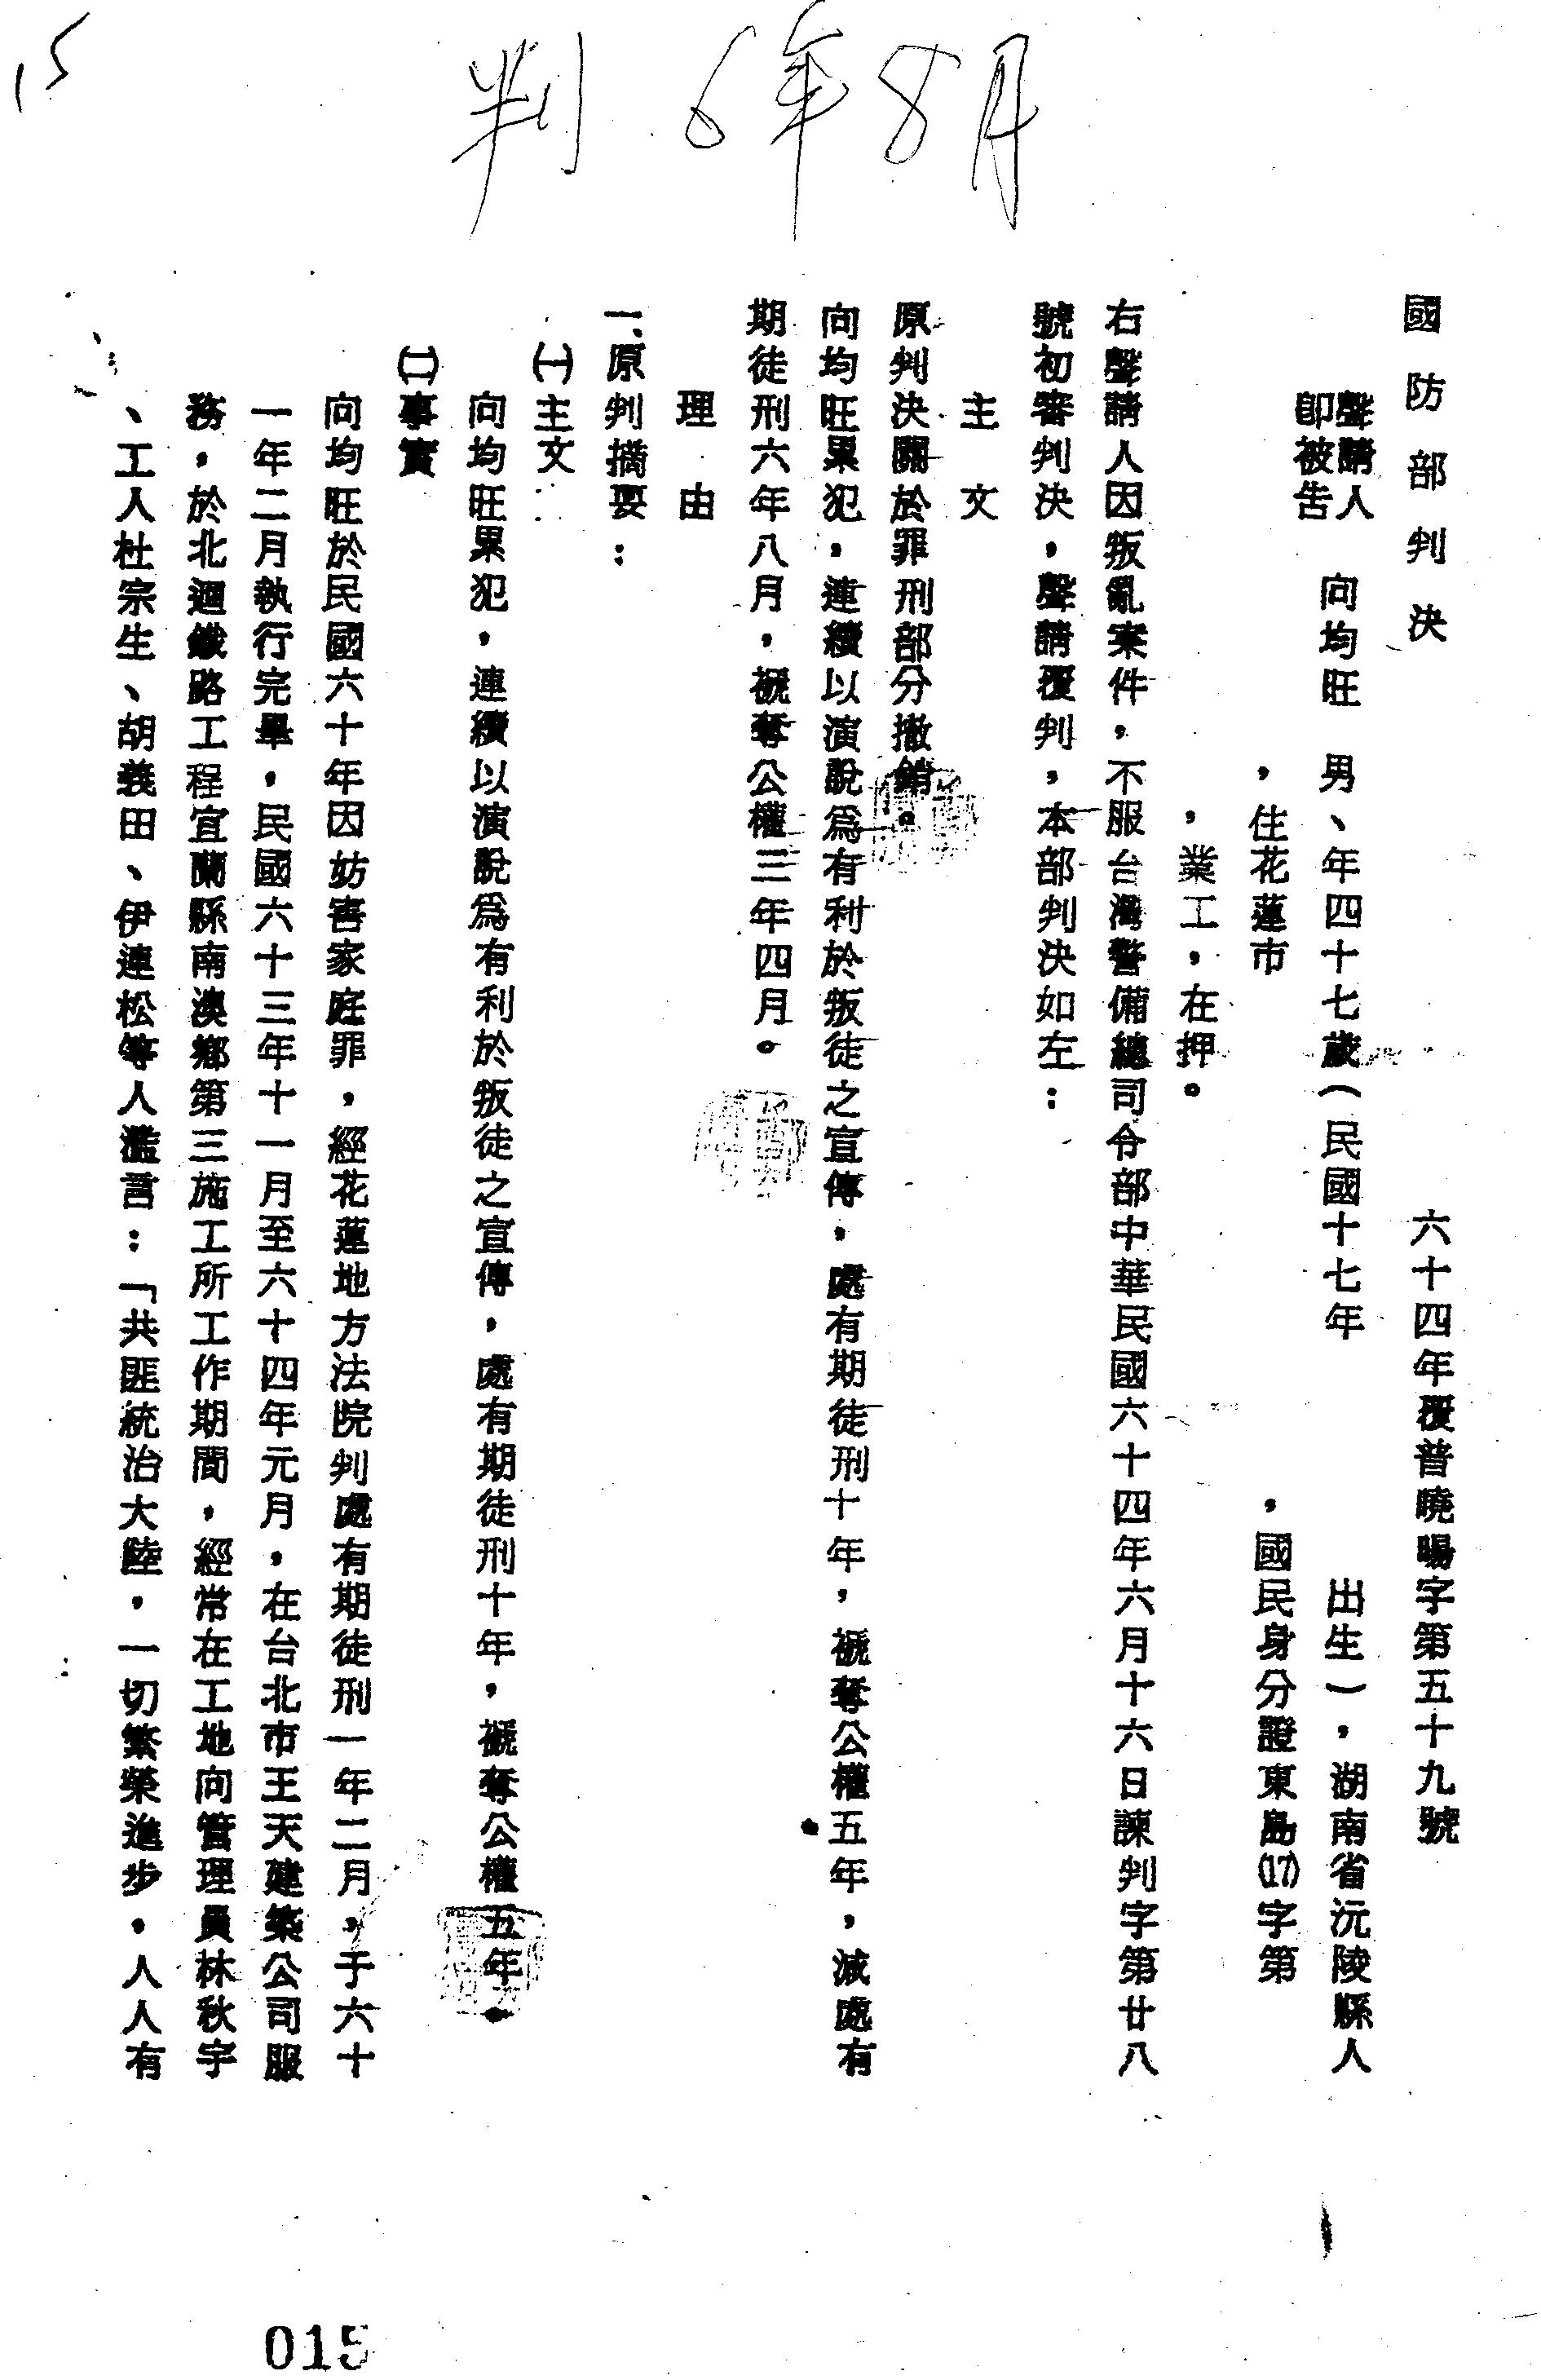 15
判 6年8月
國防部判決 六十四年覆普曉暘字第五十九號
聲請人
即被告 向均旺 男、年四十七歲(民國十七年 出生),湖南省沅陵縣人
,住花蓮市 ,國民身分證東島(17)字第
,業工,在押。
右聲請人因叛亂案件,不服台灣警備總司令部中華民國六十四年六月十六日諫判字第廿八
號初審判決,聲請覆判,本部判決如左:
主文
原判決關於罪刑部分撤銷。
向均旺累犯,連續以演說為有利於叛徒之宣傳,處有期徒刑十年,褫奪公權五年,減處有
期徒刑六年八月,褫奪公權三年四月。
理由
一、原判摘要:
㈠主文:
向均旺累犯,連續以演說為有利於叛徒之宣傳,處有期徒刑十年,褫奪公權五年。
㈡事實
向均旺於民國六十年因妨害家庭罪,經花蓮地方法院判處有期徒刑一年二月,于六十
一年二月執行完畢,民國六十三年十一月至六十四年元月,在台北市王天建築公司服
務,於北迴鐵路工程宜蘭縣南澳鄉第三施工所工作期間,經常在工地向管理員林秋宇
、工人杜宗生、胡義田、伊連松等人濫言:「共匪統治大陸,一切繁榮進步。人人有
015